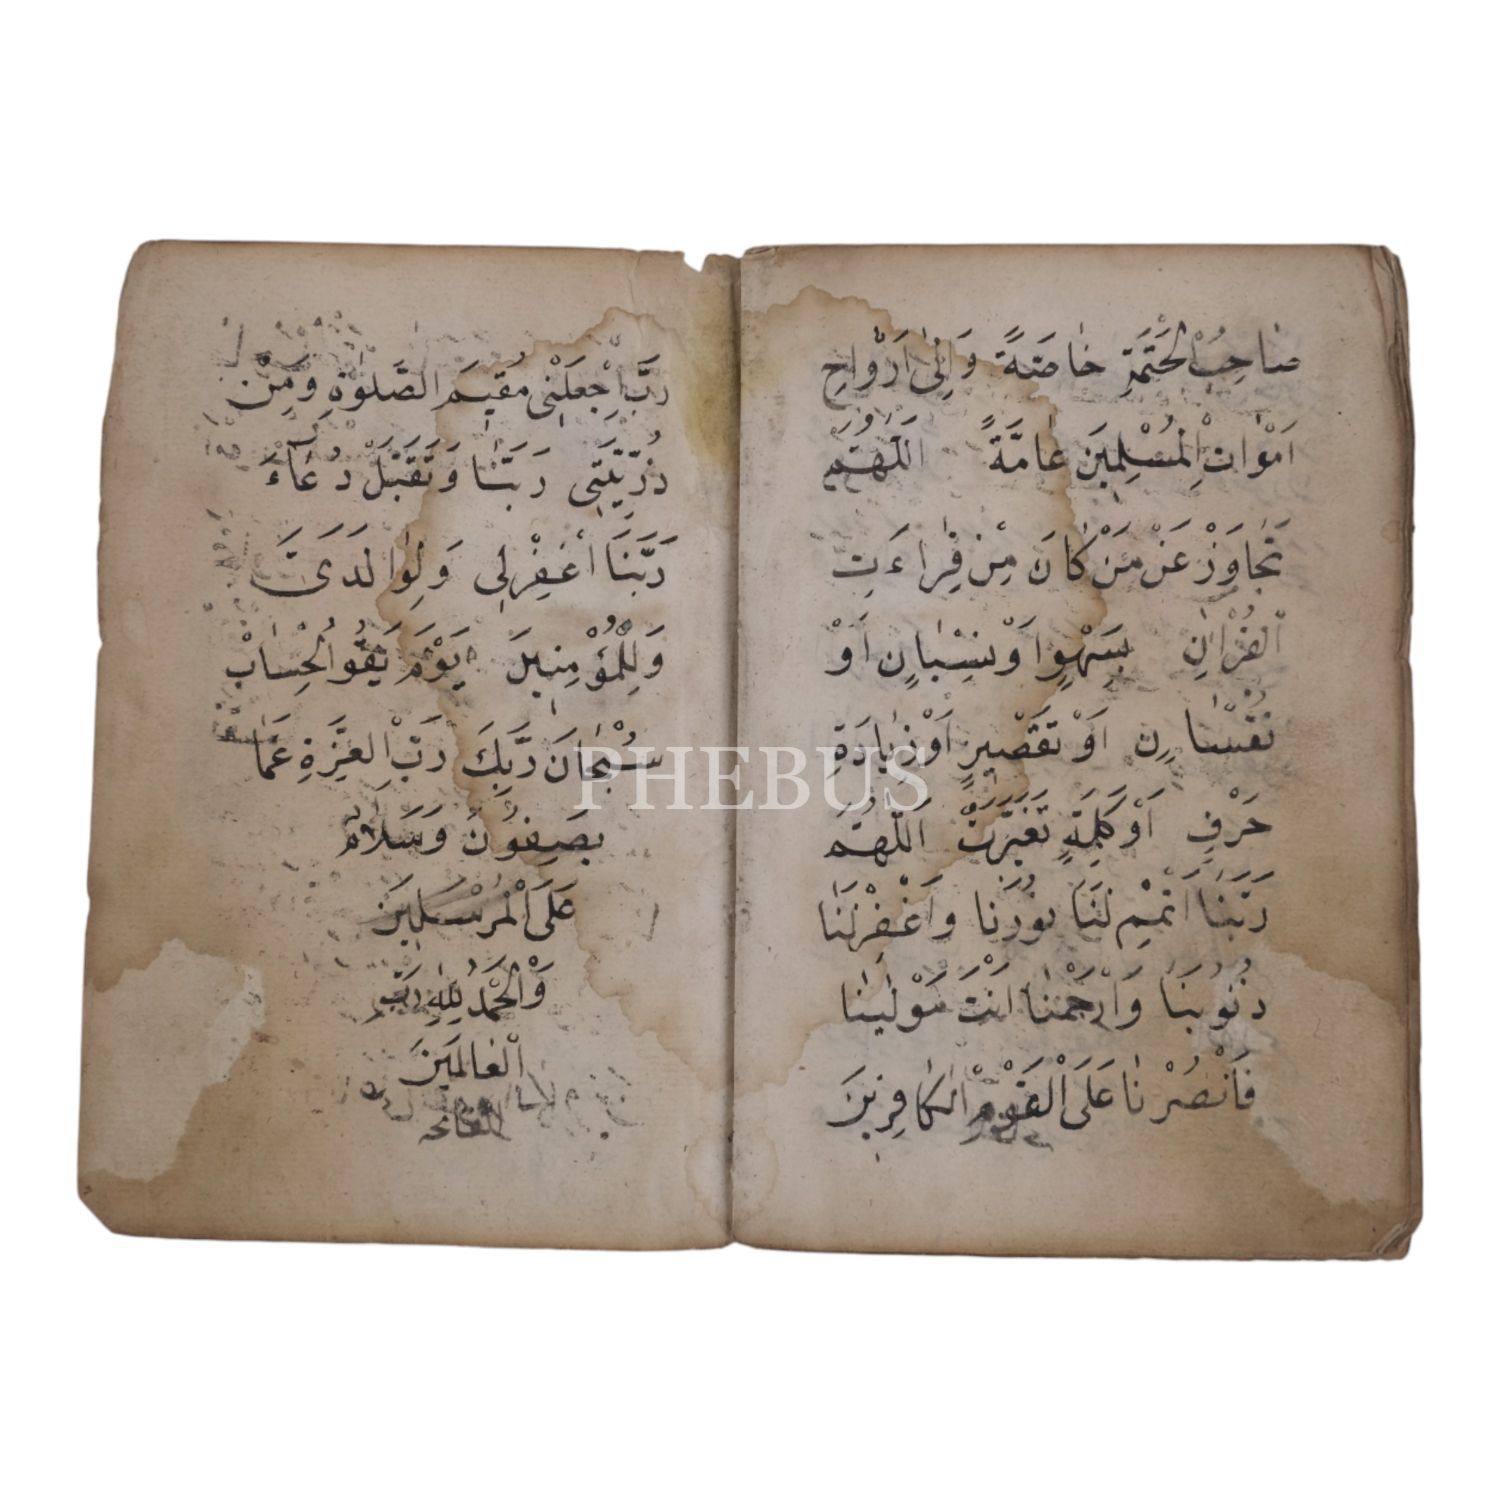 صَاحِبُ الْخَتْمَةِ خَاصَةً وَاِلٰى اَرْوَاحِ
اَمْوَاتِ الْمُسْلِمِينَ عَامَّةً اَللّٰهُمَّ
تَجَاوَزْ عَنْ مَنْ كَانَ مِنْ قِرَاءَتِ
الْقُرْاٰنِ بِسَهْوٍ اَوْ نِسْيَانٍ اَوْ
نُقْسَانٍ اَوْ تَقْصِيرٍ اَوْ زِيَادَةِ
حَرْفٍ اَوْ كَلِمَةٍ تَغَيَّرَتْ اَللّٰهُمَّ
رَبَّنَا اَتْمِمْ لَنَا نُورَنَا وَاغْفِرْ لَنَا
ذُنُوبَنَا وَارْحَمْنَا اَنْتَ مَوْلٰينَا
فَانْصُرْنَا عَلَى الْقَوْمِ الْكَافِرِينَ
رَبِّ اجْعَلْنِى مُقِيمَ الصَّلٰوةِ وَمِنْ
ذُرِّيَّتِى رَبَّنَا وَتَقَبَّلْ دُعَاءَ
رَبَّنَا اغْفِرْ لِى وَلِوَالِدَىَّ
وَلِلْمُؤْمِنِينَ يَوْمَ يَقُو الْحِسَابْ
سُبْحَانَ رَبِّكَ رَبِّ الْعِزَّةِ عَمَّا
يَصِفُونَ وَسَلَامٌ
عَلَى الْمُرْسَلِينَ
وَالْحَمْدُ لِلّٰهِ رَبِّ
الْعَالَمِينَ
الفاتحه
PHEBUS